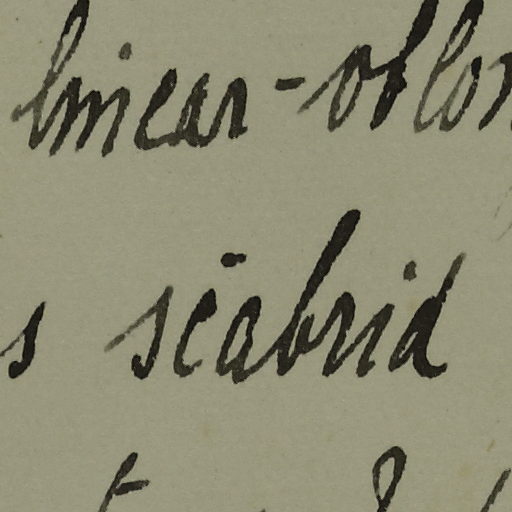 linear-oblon
s scabrid